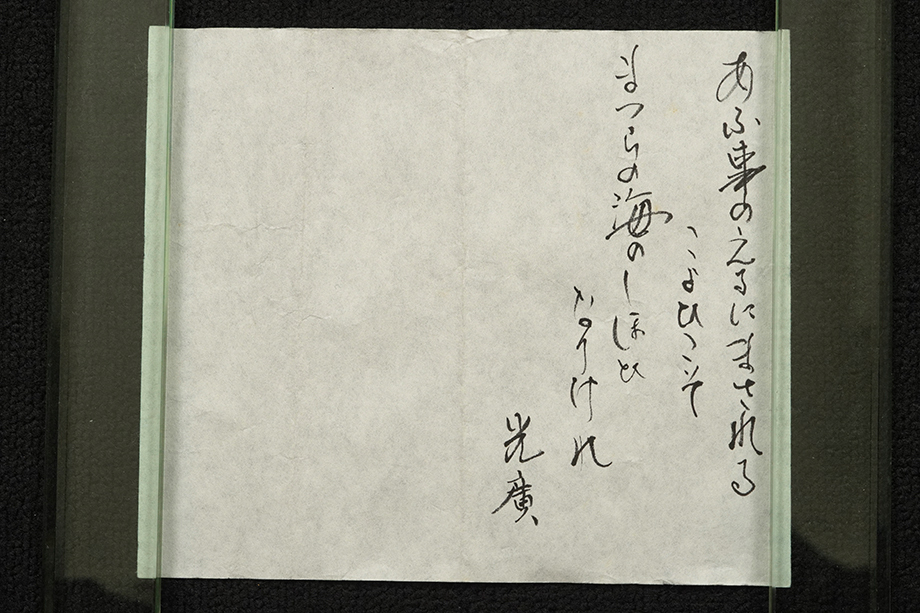 あふ事のえるにまされる
こよひこそ
まつらの海のしほひ
なりけれ
光廣